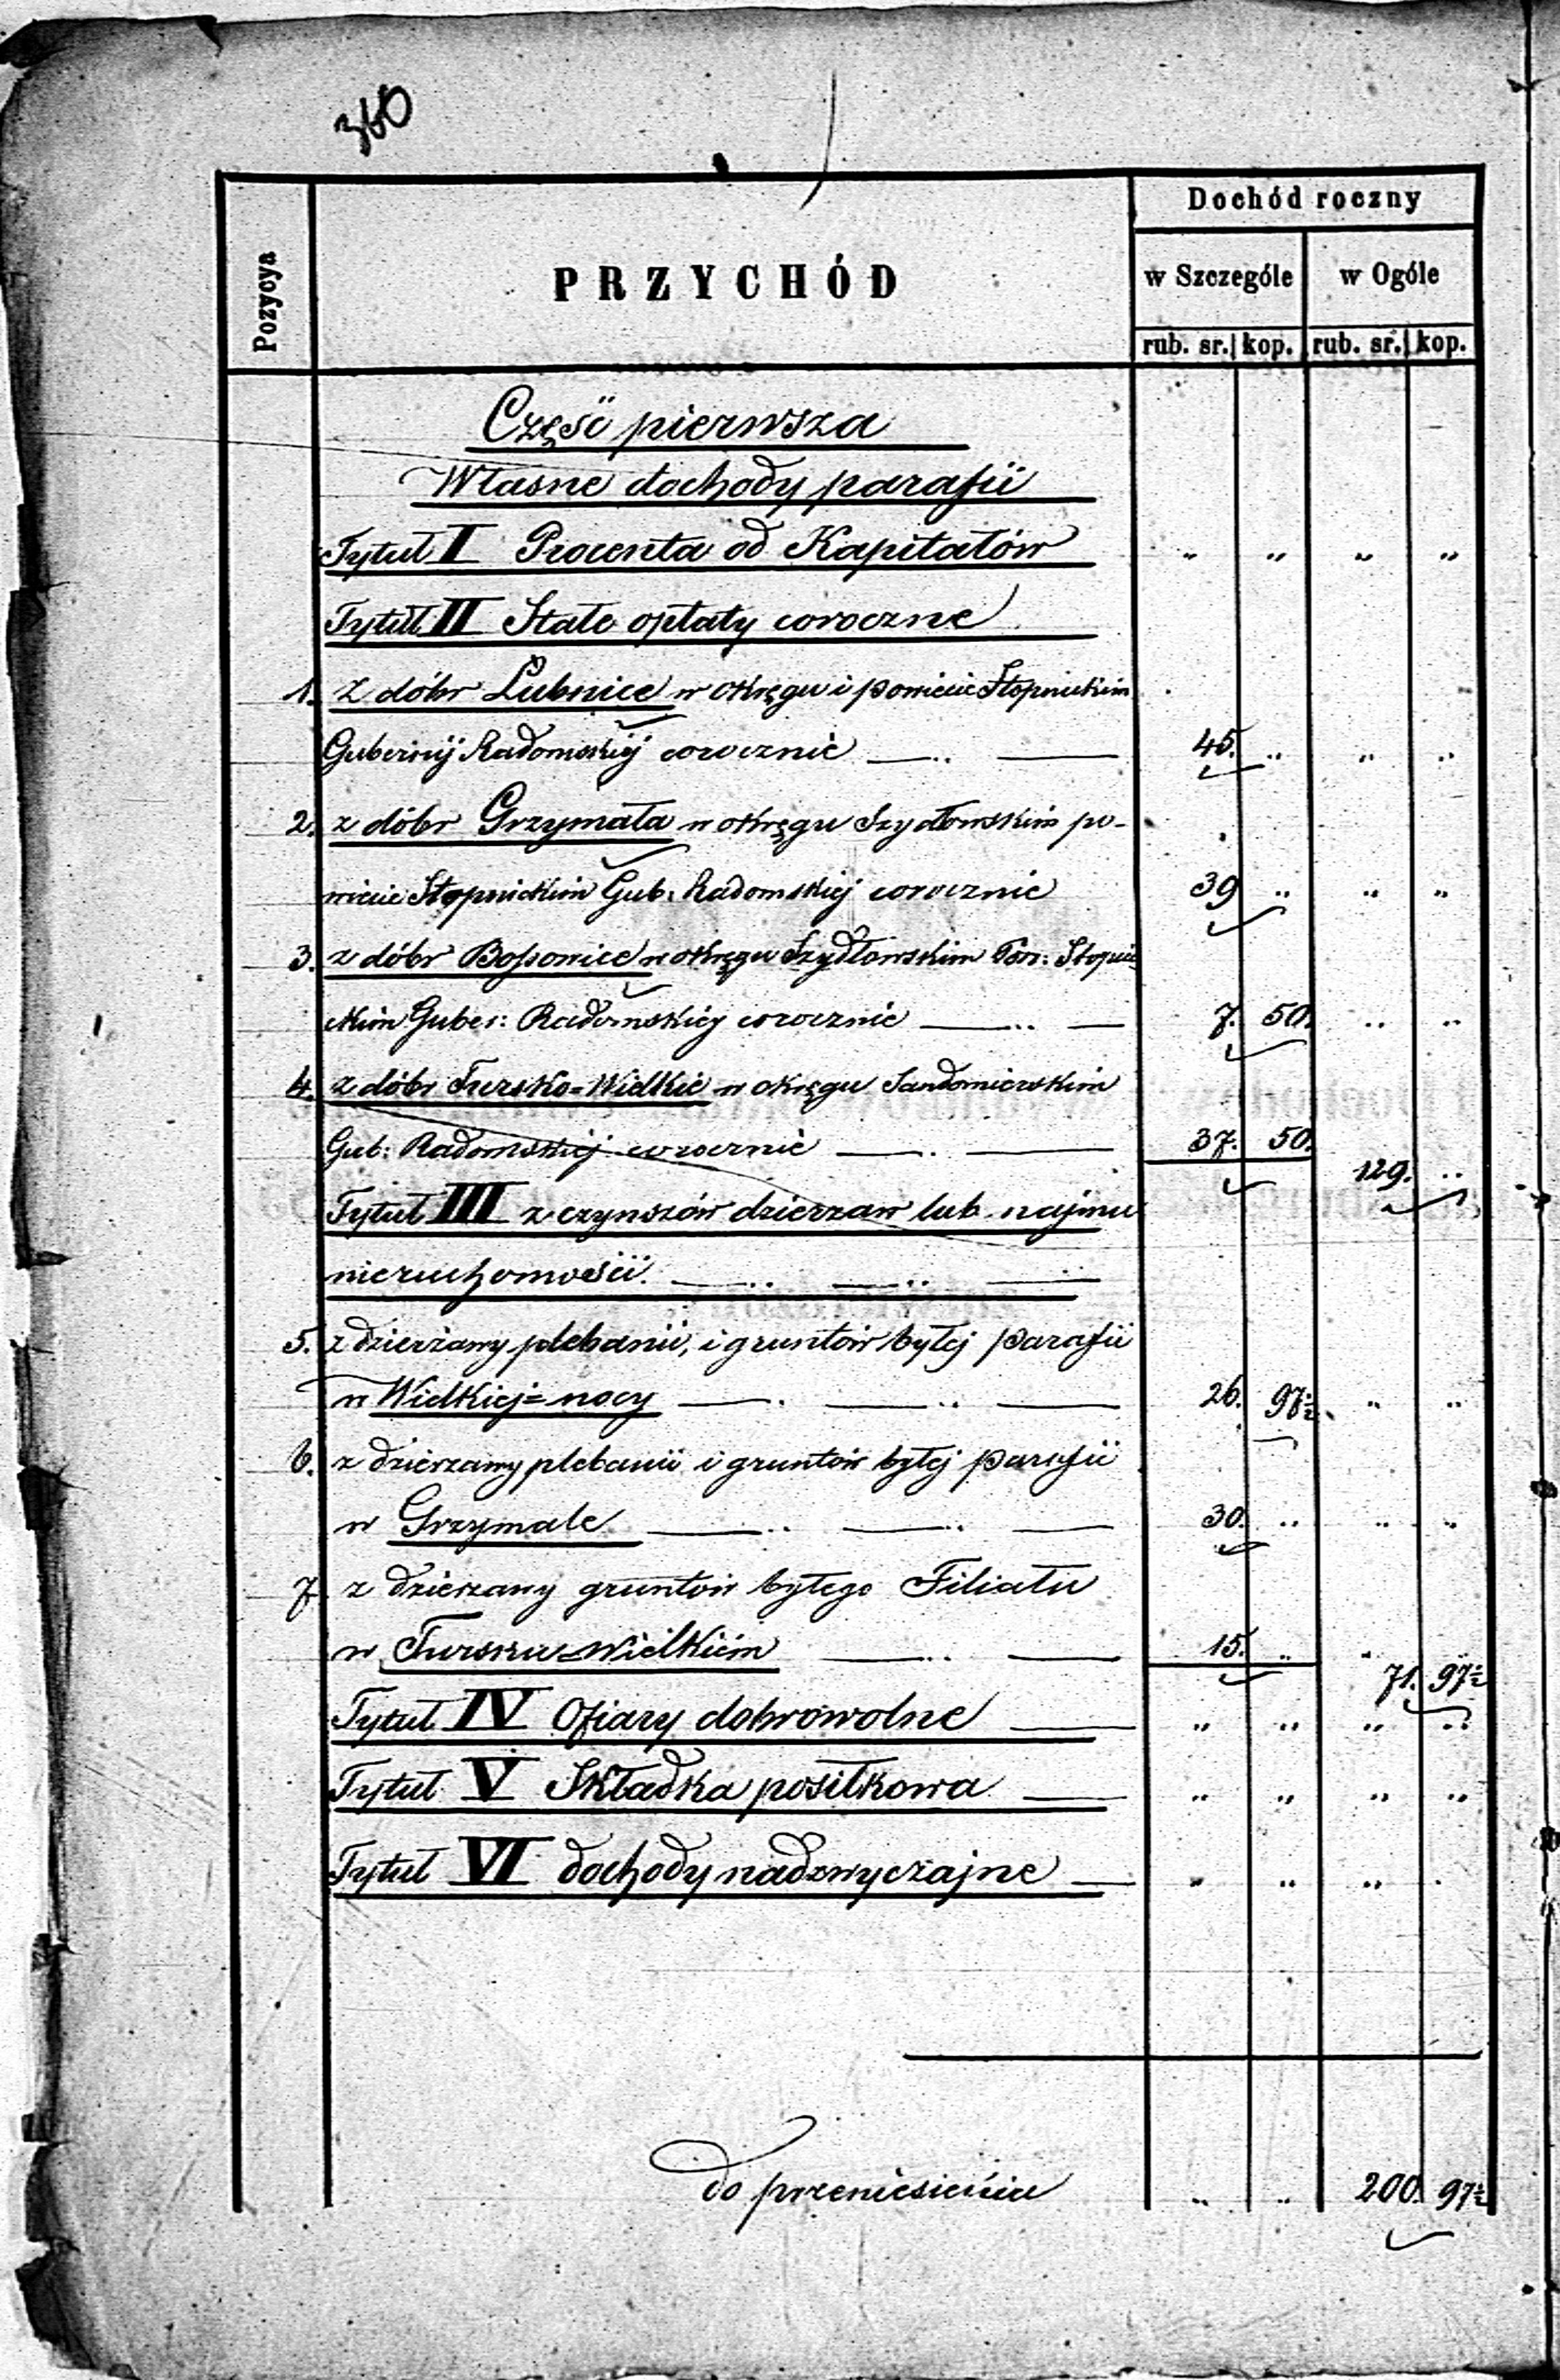 360
Dochód roczny
Pozycya PRZYCHÓD w Szczególe w Ogóle
rub. sr. kop. rub. sr. kop.
Część pierwsza
Własne dochody parafii
Tytuł I Procenta od Kapitałów " " " "
Tytuł II Stałe opłaty coroczne
1. z dóbr Łubnice w okręgu i powiecie Stopnickim
Gubernij Radomskiej corocznie 45. " " "
2. z dóbr Grzymała w okręgu Szydłowskim po-
wiecie Stopnickim Gub: Radomskiej corocznie 39 " " "
3. z dóbr Bossowice w okręgu Szydłowskim Pow: Stopni
ckim Guber: Radomskiej corocznie 7. 50. " "
4. z dóbr Tursko=Wielkie w okręgu Sandomierskim
Gub: Radomskiej corocznie 37. 50. 129. "
Tytuł III z czynszów dzierżaw lub najmu
nieruchomości
5. z dzierżawy plebanii, i gruntów byłej parafii
w Wielkiej=nocy 26. 97½ " "
6. z dzierżawy plebanii i gruntów byłej parafii
w Grzymale 30. " " "
7. z dzierzawy gruntów byłego Filiału
w Tursku=Wielkiem 15. " 71. 97½
Tytuł IV Ofiary dobrowolne " " " "
Tytuł V Składka posiłkowa " " " "
Tytuł VI dochody nadzwyczajne " " " "
do przeniesienia " " 200. 97½